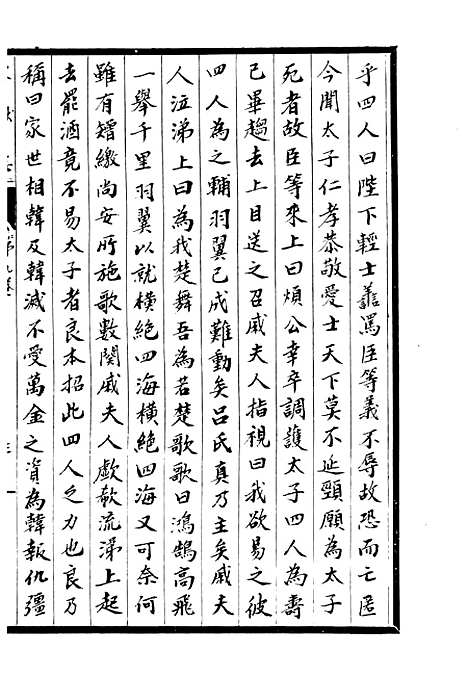 乎四人曰陛下輕士善罵臣等義不辱故恐而亡匿
今聞太子仁孝恭敬愛士天下莫不延頸願為太子
死者故臣等來上曰煩公幸卒調護太子四人為壽
已畢趨去上目送之召戚夫人指視曰我欲易之彼
四人為之輔羽翼已成難動矣呂氏真乃主矣戚夫
人泣涕上曰為我楚舞吾為若楚歌歌曰鴻鵠高飛
一舉千里羽翼以就橫絕四海橫絕四海又可奈何
雖有矰繳尚安所施歌數闋戚夫人歔欷流涕上起
去罷酒竟不易太子者良本招此四人之力也良乃
稱曰家世相韓及韓滅不受萬金之資為韓報仇彊